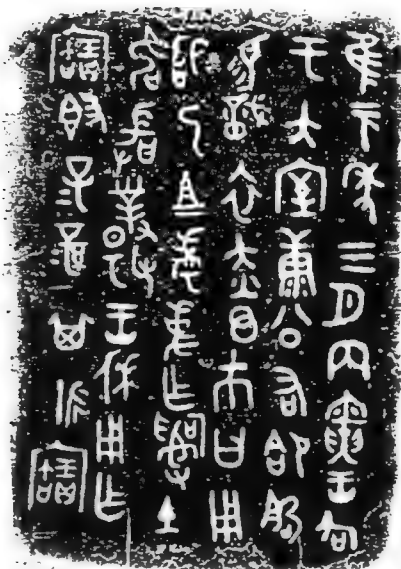 隹元年三月丙寅王各
于大室康公右郃曶
易戠衣赤⊙巿曰用
乃且考事乍土
敢對揚王休用乍
寶𣪘子孫其永寶